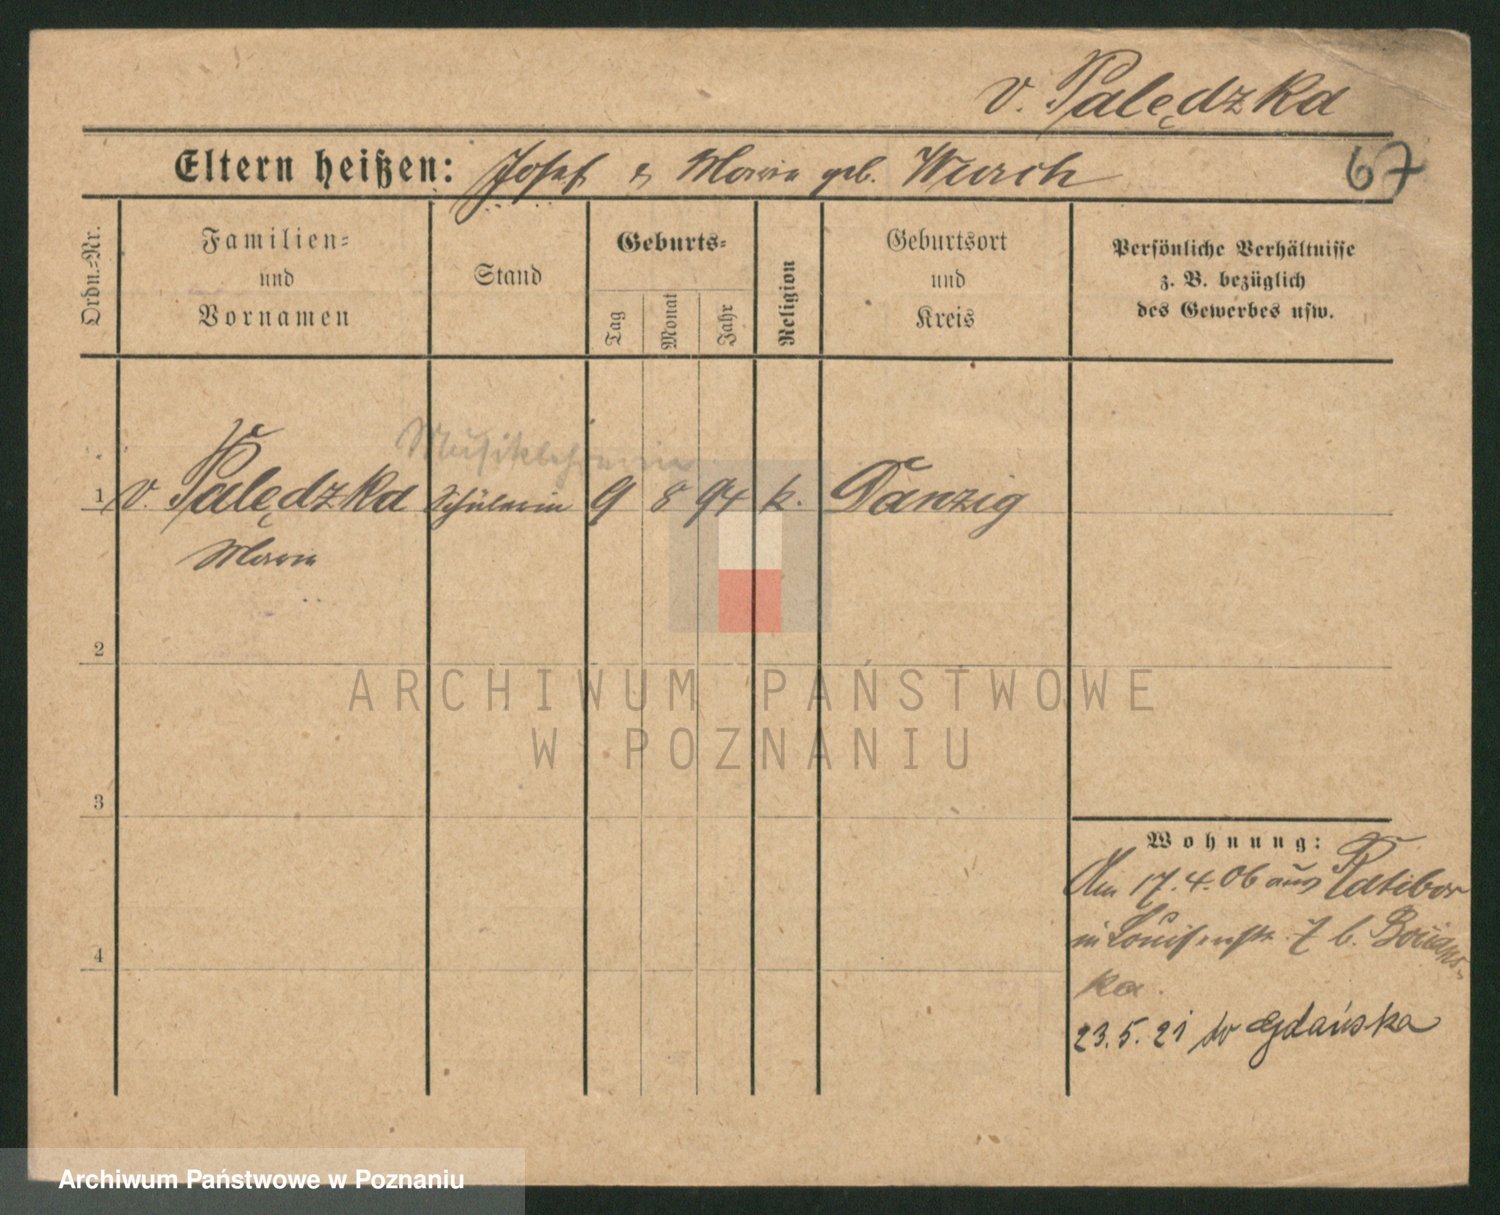 v. Palędzka
Eltern heißen: Josef & Maria geb. Wurch
67
Ordn.=Nr.
Familien=
und
Vornamen
Stand
Geburts=
Tag
Monat
Jahr
Religion
Geburtsort
und
Kreis
Persönliche Verhältnisse
z. B. bezüglich
des Gewerbes usw.
Musiklehrerin
1 v. Palędzka Schülerin 9 8 94 k. Danzig
Maria
2
ARCHIWUM PAŃSTWOWE
W POZNANIU
3
Wohnung:
Am 17.4.06 aus Ratibor
in Louisenstr. 7 b.
ka.
4
23.5.21 do Gdańska
Archiwum Państwowe w Poznaniu